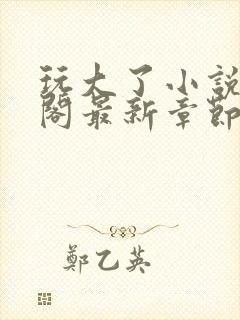 玩大了小說
閣最新章節
鄭乙英